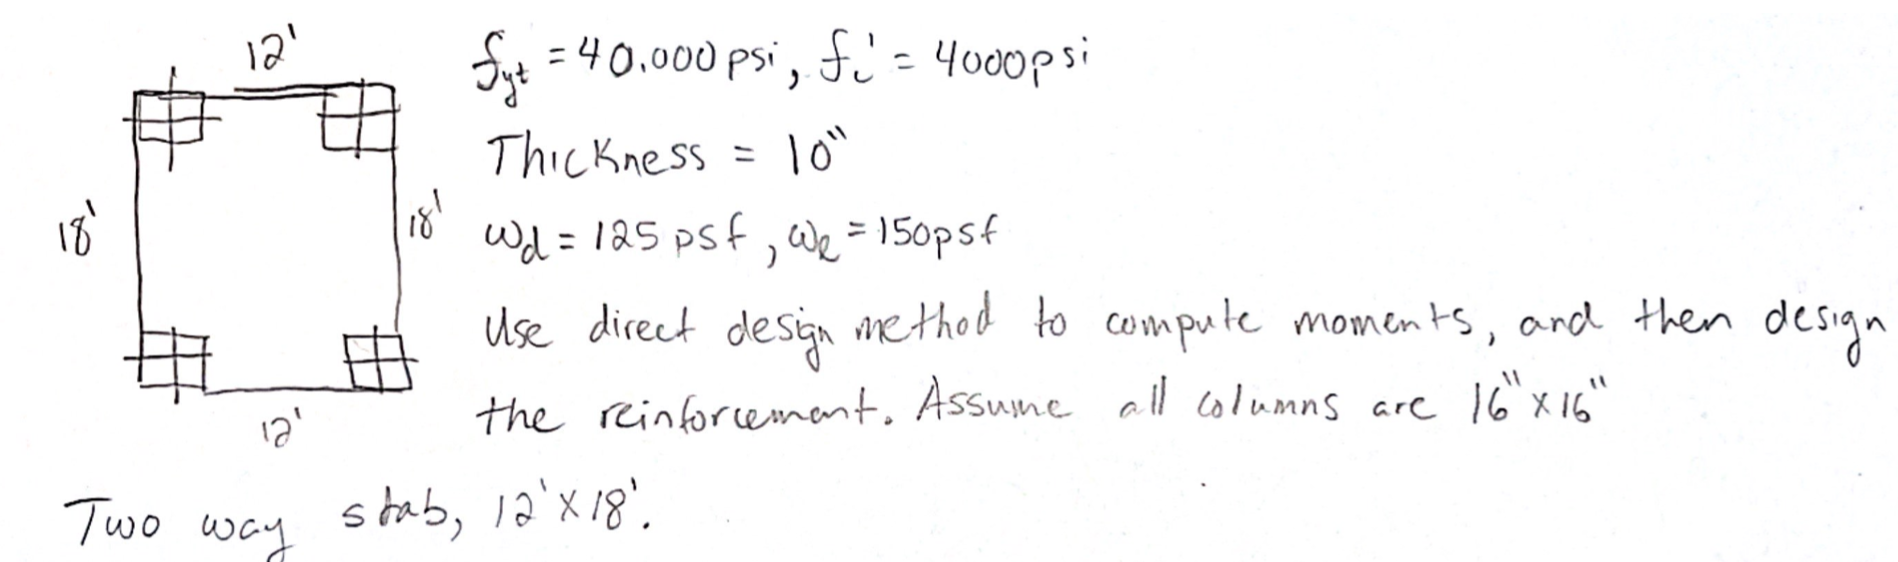 12'
f_yt = 40,000 psi, f_c' = 4000psi
Thickness = 10"
18'
18'
ω_d = 125 psf, ω_l = 150psf
Use direct design method to compute moments, and then design
the reinforcement. Assume all columns are 16"x16"
12'
Two way slab, 12'x18'.